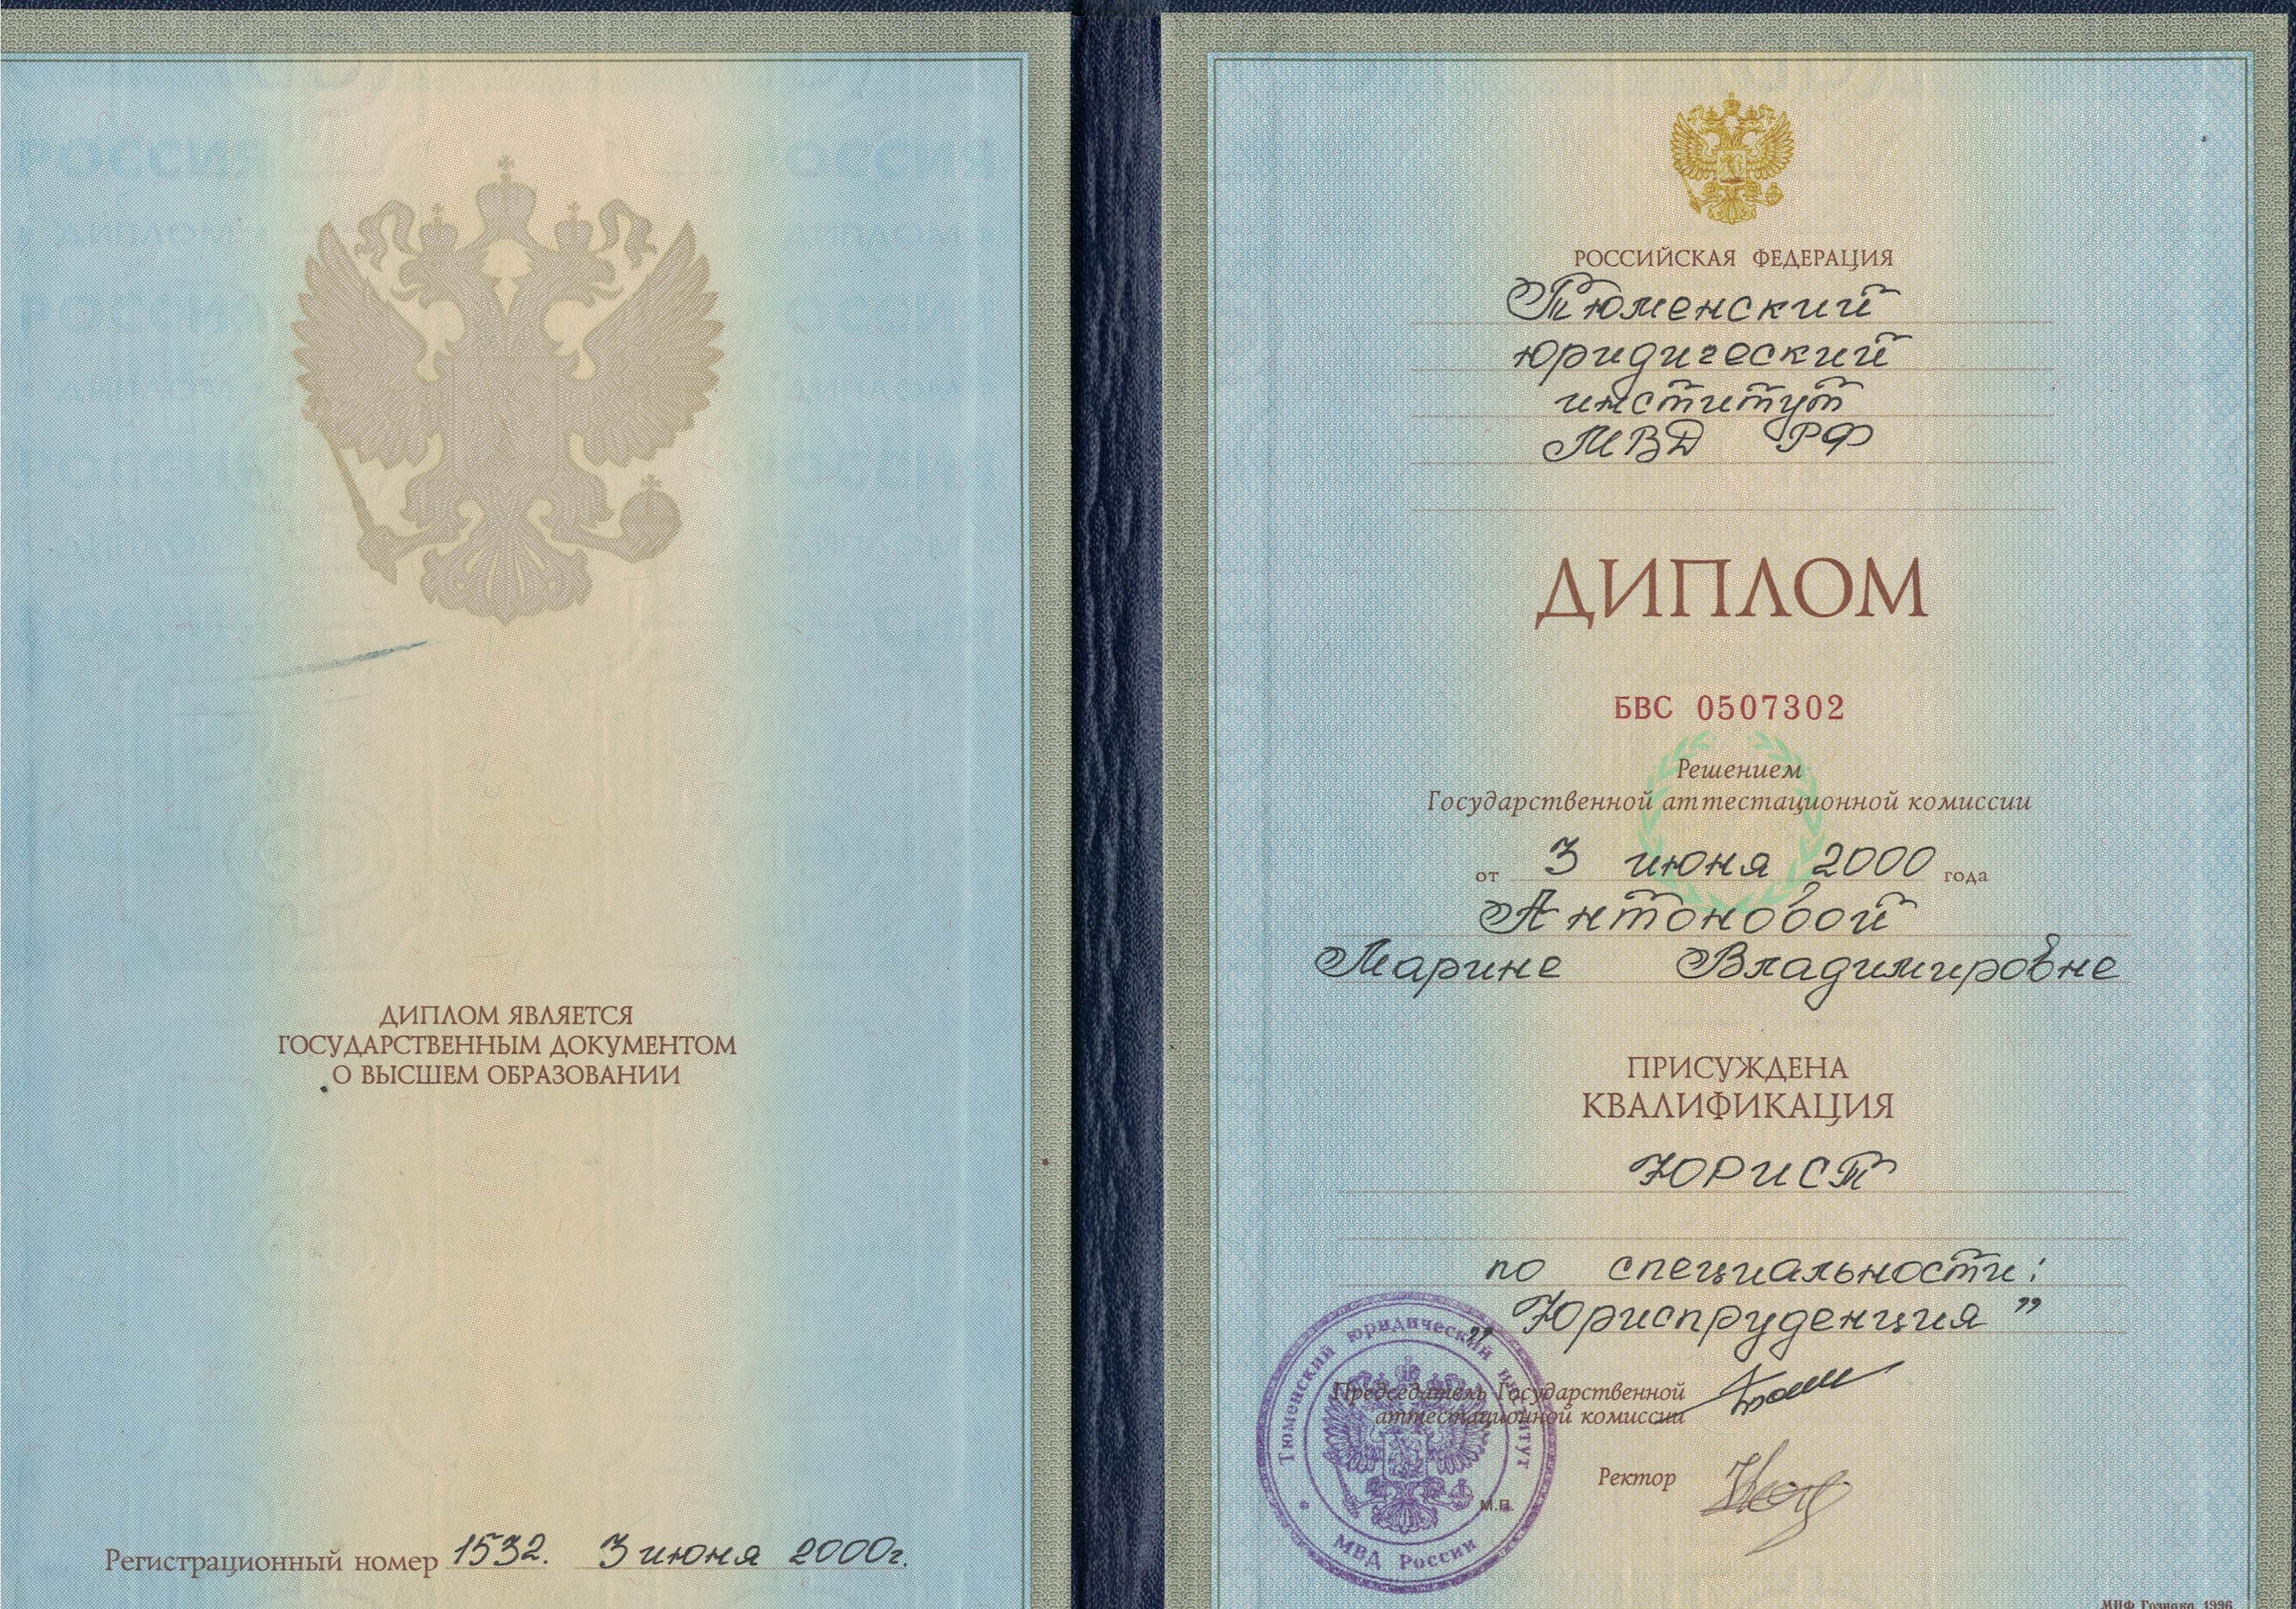 РОССИЯ
ОССИЯ
ДИПЛОМ
ДИПЛОМ
РОССИЯ
ДИПЛОМ ЯВЛЯЕТСЯ
ГОСУДАРСТВЕННЫМ ДОКУМЕНТОМ
О ВЫСШЕМ ОБРАЗОВАНИИ
Регистрационный номер 1532. 3 июня 2000г.
РОССИЙСКАЯ ФЕДЕРАЦИЯ
Тюменский
юридический
институт
МВД РФ
ДИПЛОМ
БВС 0507302
Решением
Государственной аттестационной комиссии
от 3 июня 2000 года
Антоновой
Марине Владимировне
ПРИСУЖДЕНА
КВАЛИФИКАЦИЯ
ЮРИСТ
по специальности:
„Юриспруденция”
Председатель Государственной
аттестационной комиссии
Ректор
М.П.
Тюменский юридический институт
МВД России
МПФ Гознака. 1996.